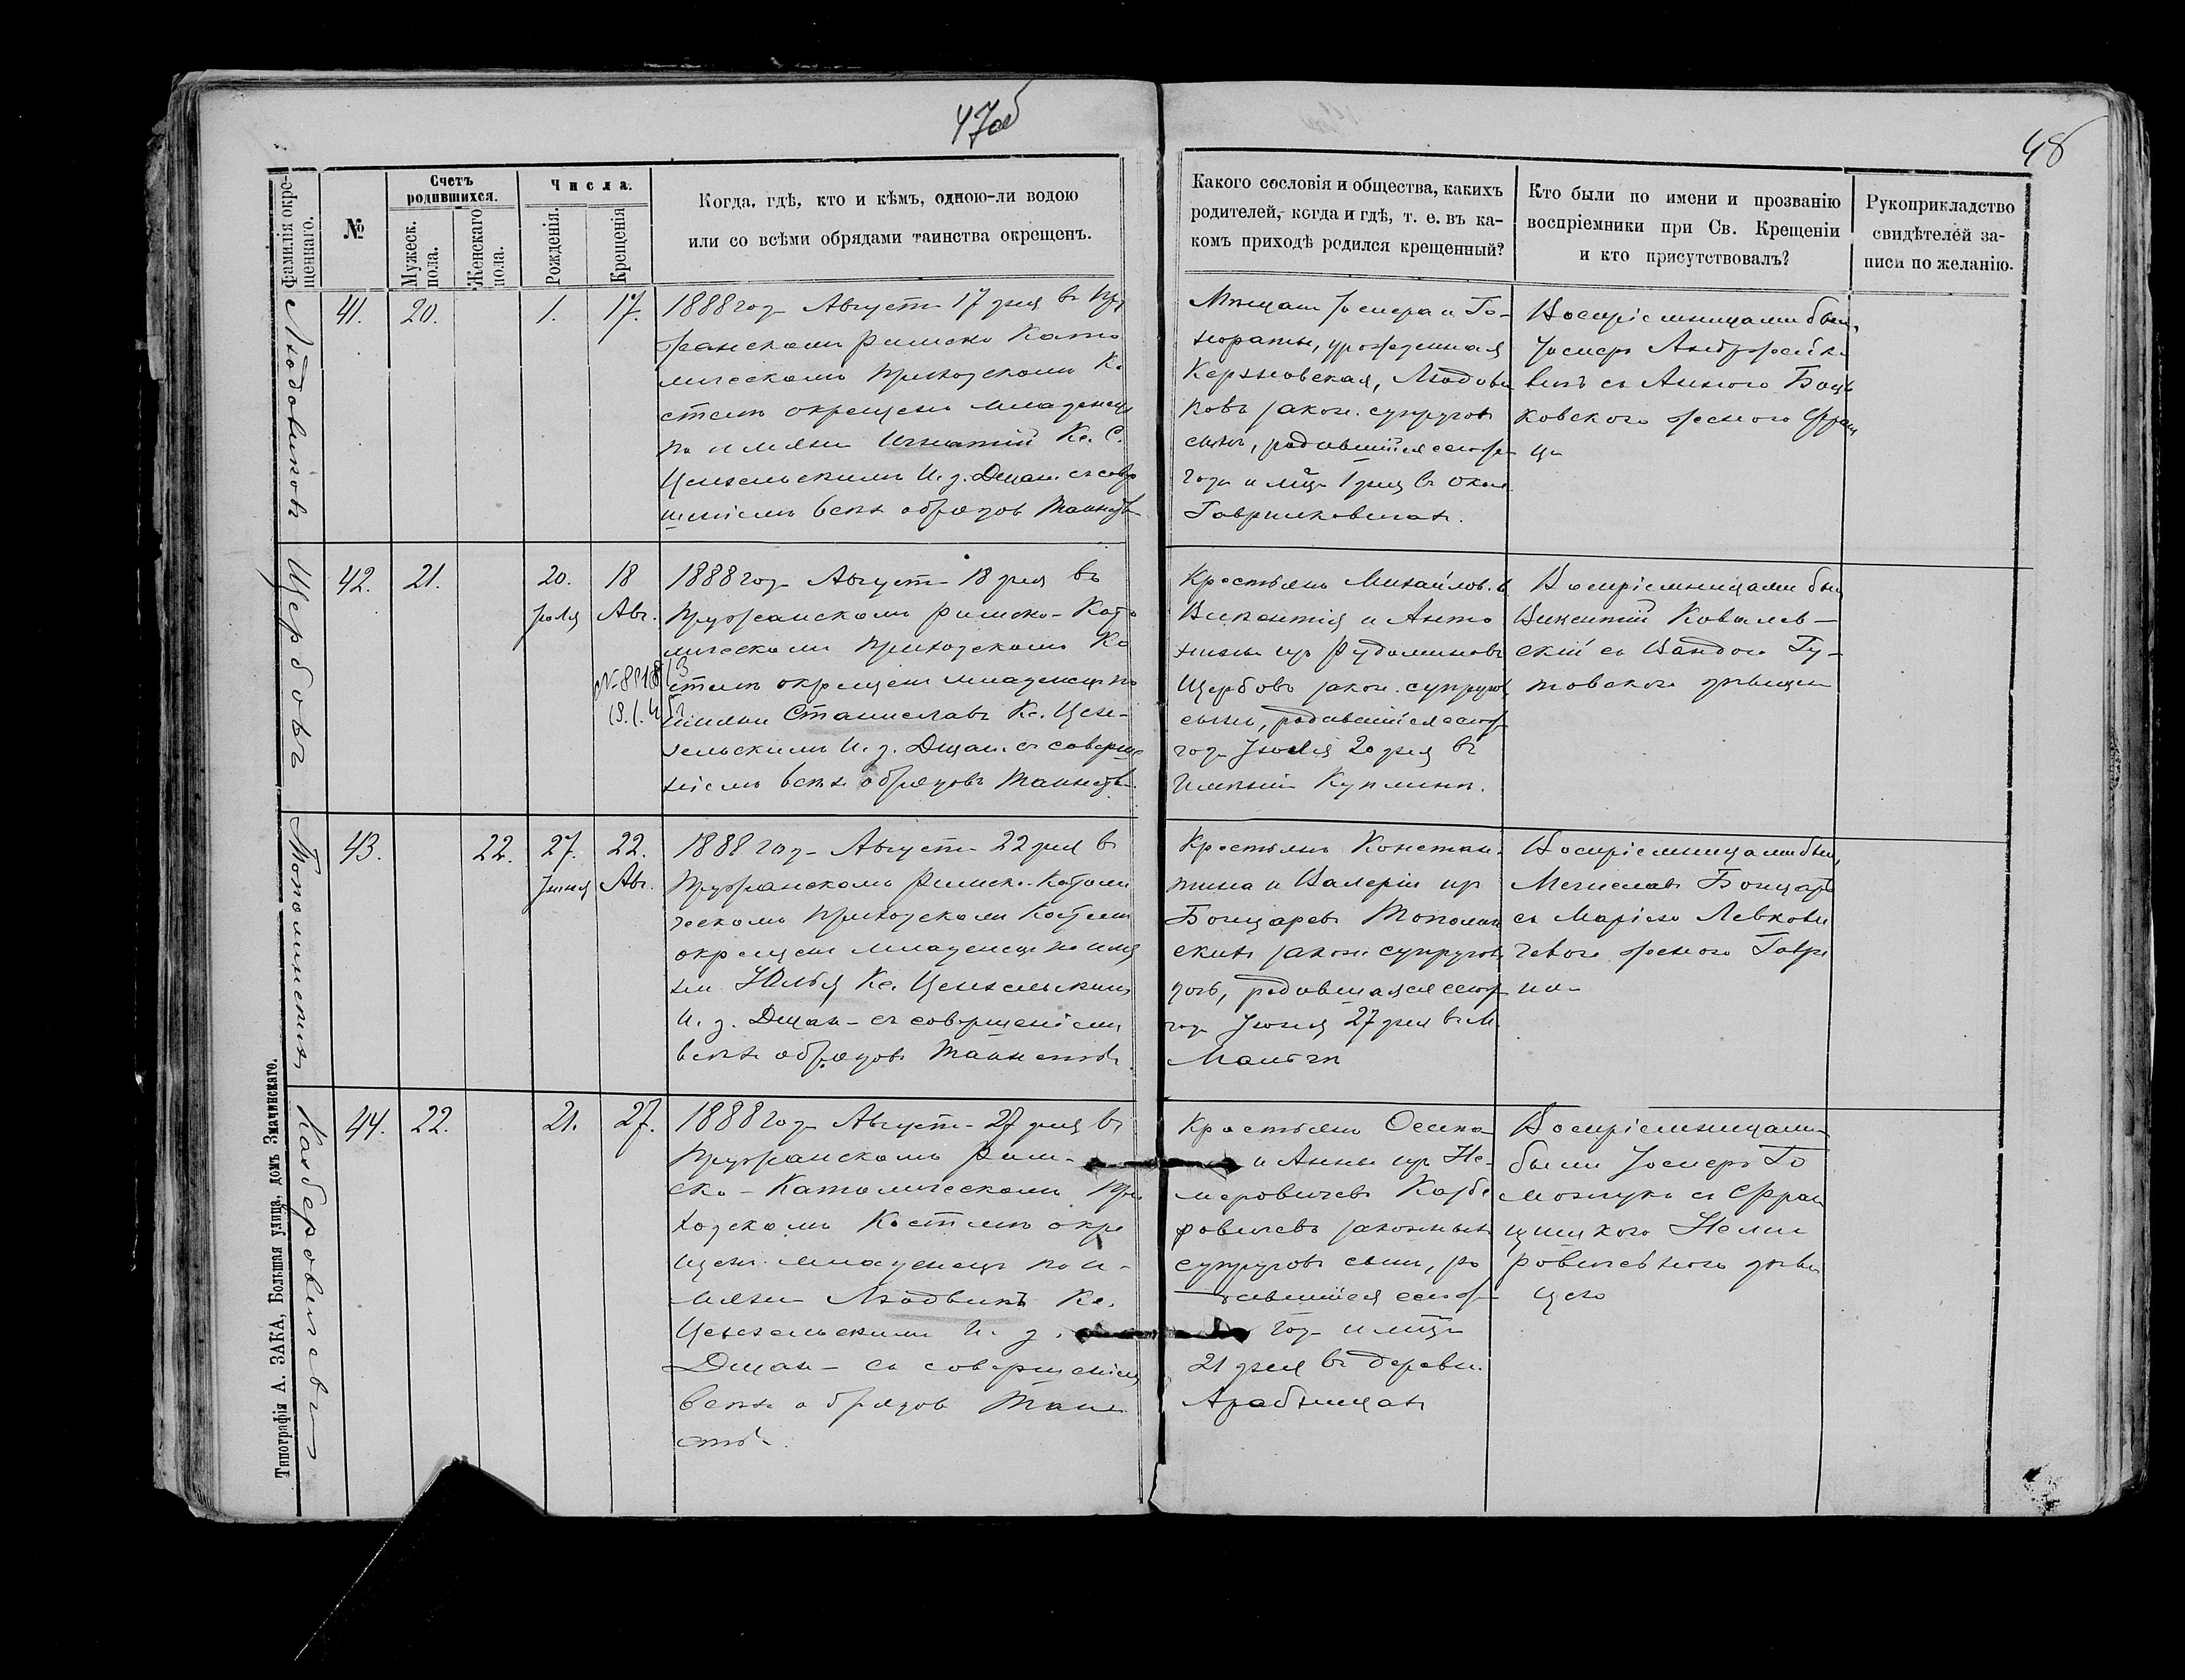 47об
48
Фамилія окре-
щеннаго.
№
Счетъ
родившихся.
Мужеск.
пола.
Женскаго
пола.
Числа.
Рожденія.
Крещенія
Когда, гдѣ, кто и кѣмъ, одною-ли водою
или со всѣми обрядами таинства окрещенъ.
Какого сословія и общества, какихъ
родителей, когда и гдѣ, т. е. въ ка-
комъ приходѣ родился крещенный?
Кто были по имени и прозванію
воспріемники при Св. Крещеніи
и кто присутствовалъ?
Рукоприкладство
свидѣтелей за-
писи по желанію.
Людовиковъ
41.
20.
1.
17.
1888 года Августа 17 дня въ Пру
жанскомъ Римско Като
лическомъ Приходскомъ Ко
стелѣ окрещенъ младенецъ
по имени Игнатій Кс. С.
Ценхельскимъ И. д. Декан. съ совер
шеніемъ всѣхъ обрядовъ Таинства
Мѣщанъ Іосифа и Го-
нораты, урожденная
Людови
ковъ закон. супруговъ
сынъ, родившійся сего
года и мца 1 дня въ окол.
Гавриловичахъ.
Воспріемниками были
Іосифъ Андржейко
вичъ съ Анною
ковскою женою Фран
ца
Щербовъ
42.
21.
20.
Іюля
18
Авг.
1888 года Августа 18 дня въ
Пружанскомъ Римско-Като
лическомъ Приходскомъ Ко
стелѣ окрещенъ младенецъ по
имени Станиславъ Кс. Цен-
хельскимъ И. д. Декан. съ соверше
ніемъ всѣхъ обрядовъ Таинства.
Крестьянъ Михайлов. в
Викентія и Анто
нины изъ Рудоминовъ
Щербовъ закон. супругов
сынъ, родившійся сего
года Іюля 20 дня въ
имѣніи Куплинѣ.
Воспріемниками были
Викентій Ковалев-
скій съ Вандою Гу-
товскою дѣвицею
Тополинскихъ
43.
22.
27.
Іюня
22.
Авг.
1888 года Августа 22 дня въ
Пружанскомъ Римско-Католи
ческомъ Приходскомъ Костелѣ
окрещенъ младенецъ по име
ни Юлія Кс. Ценхельскимъ
И. д. Декан- съ совершеніемъ
всѣхъ обрядовъ Таинства.
Крестьянъ Констан-
тина и Валеріи изъ
Бондаревъ Тополин
скихъ закон. супруговъ
дочь, родившаяся сего
года Іюня 27 дня въ М.
Мальчи
Воспріемниками были
Мечиславъ Бондарь
съ Маріею Левкови
чевою женою Гаврі
ила
Казберовичевъ
44.
22.
21.
27.
1888 года Августа 27 дня въ
Пружанскомъ Рим-
ско-Католическомъ При
ходскомъ Костелѣ окре
щенъ младенецъ по и-
мени Людвикъ Кс.
Ценхельскимъ И. д.
Декан- съ совершеніемъ
всѣхъ обрядовъ Таин
ства.
Крестьянъ Осипа
и Анны изъ Не-
меровичевъ Казбе
ровичевъ законныхъ
супруговъ сынъ, ро
дившійся сего
года и мца
21 дня въ деревн.
Арабникахъ
Воспріемниками
были Іосифъ Го
молчукъ съ Фран
цишкою Неми
ровичевною дѣви
цею
Типографія А. ЗАКА, Большая улица, домъ Значинскаго.